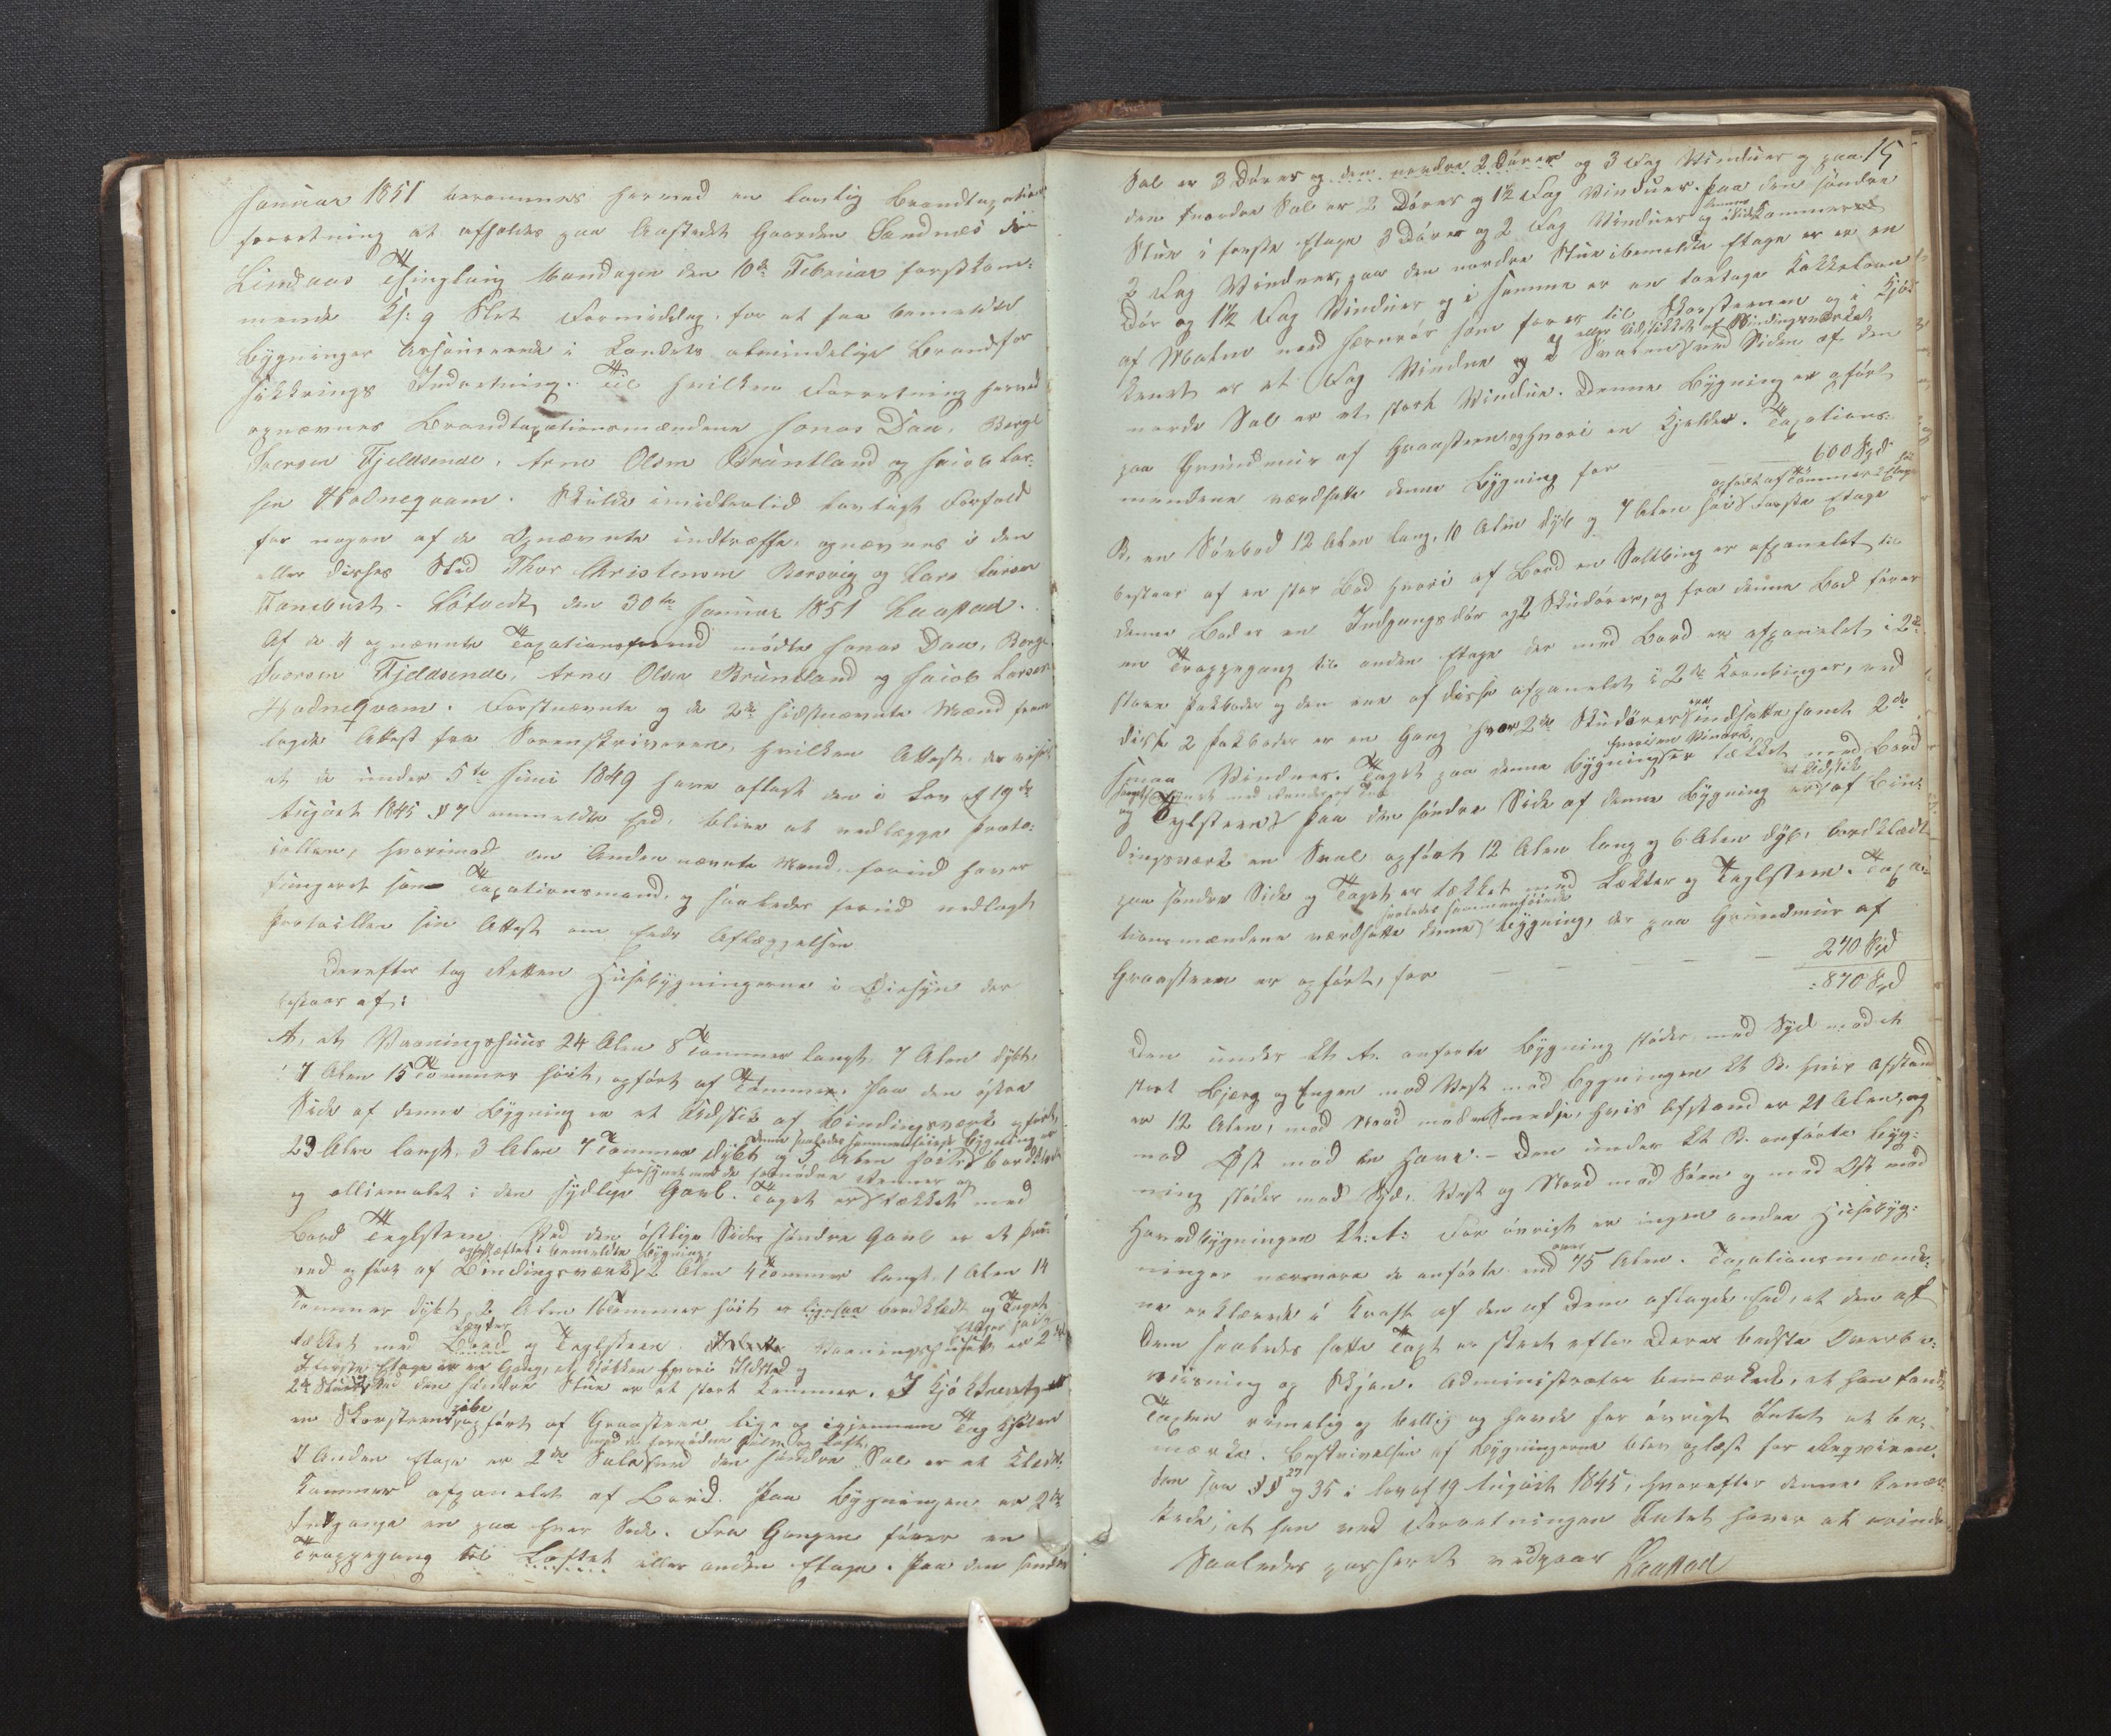 Januar 1851 berammes herved en lovlig Brandtaxations
forretning at afholdes paa Aastedet Gaarden Sandnæs i
Lindaas Thinglaug Mandagen den 10de Februar førstkom-
mende Kl: 9 Slet Formiddag, for at faa bemeldte
Bygninger assurerede i Landets almindelige Brandfor
sikkrings Indretning. Til hvilken Forretning herved
opnævnes Brandtaxationsmændene Jonas Daa, Berge
Iversen Fjeldsende, Arne Olsen Bruntland og Jacob Lar-
sen Hodneqvam. Skulde imidlertid lovligt Forfald
for nogen af de Opnævnte indtræffe, opnævnes i den
eller disses Sted Thor Aristensen og Lars Larsen
Tonebust. Løtvedt den 30te Januar 1851 Laastad.
Af de 4 opnævnte Taxationsmænd mødte Jonas Daa, Berge
Iversen Fjeldsende, Arne Olsen Bruntland og Jacob Larsen
Hodneqvam. Førstnævnte og de 2de sidstnævnte Mænd frem
lagde Attest fra Sorenskriveren, hvilken Attest, der viser
at de under 5te Juni 1849 have aflagt den i Lov af 19de
August 1845 § 7 ommeldte Eed, bliver at vedlægge Proto-
collen, hvorimod den Anden nævnte Mand forud haver
fungeret som Taxationsmand, og saaledes forud vedlagt
Protocollen sin Attest om Eeds Aflæggelsen
Derefter tog Retten Huusebygningerne i Øiesyn der
bestaar af:
A, et Vaaningshuus 24 Alen 8 Tommer langt, 7 Alen dybt,
7 Alen 15 Tommer høit, opført af Tømmer. Paa den østre
Side af denne Bygning er et Udstik af Bindingsværk opført,
23 Alen langt, 3 Alen 7 Tommer dybt og 5 Alen høit
denne saaledes sammenføiede Bygning er bordklædt
og olliemalet i den sydlige Gavl. Taget er
forsynet med de fornødne Renner og tækket med
Bord Teglsteen. Ved den østlige Sides søndre Gavl er et
opført af Bindingsværk
bemeldte Bygning, 2 Alen 4 Tommer langt, 1 Alen 14
Tommer dybt, 2 Alen 16 Tommer høit er ligesaa bordklædt og Taget
tækket med Lægter og Teglsteen. Vaaningshuset er 2de Etager
I første Etage er en Gang, et Kjøkken hvori Ildsted og
2de Stuer, Ved den søndre Stue er et stort Kammer. I Kjøkkenet
en Skorsteens pibe opført af Graasteen lige op igjennem Tag
I Anden Etage er 2de Sale
med de fornødne Gulve og Loft, ved den søndre Sal er et Klæde-
kammer afpanelet af Bord. Paa Bygningen er 2de
Indgange en paa hver Side. Fra Gangen fører en
Trappegang til Loftet eller anden Etage. Paa den søndre
15
Sal er 3 Dører og den nordre 2 Dører og 3 Fag Vinduer og paa
den nordre Sal er 2 Dører og 1½ Fag Vinduer. Paa den søndre
Stue i første Etage 3 Dører og 2 Fag Vinduer og i Kammeret
2 Fag Vinduer, paa den nordre Stue ibemeldte Etage er en
Dør og 1½ Fag Vinduer og i samme er en toetages Kakkelovn
af Malm med Jernrør som fører til Skorstenen og i Kjøk-
kenet er et Fag Vindue og I Svalen
eller Udstikket af Bindingsværket ved Siden af den
nordre Sal er et stort Vindue. Denne Bygning er opført
paa Grundmuur af Graasteen, og hvori en Kjelder. Taxations-
mændene værdsatte denne Bygning for — 600 Spd
B, en Søebod 12 Alen lang, 10 Alen dyb og 7 Alen høi
opført af Tømmer 2 Etager første Etage
bestaar af en stor Bod hvori af Bord en Saltbing er afpanelet til
denne Bod er en Indgangsdør og 2 Skudører, og fra denne Bod fører
en Trappegang til anden Etage der med Bord er afpanelet i 2de
store Pakboder og den ene af disse afpanelet i 2de Kornbinger, ved
disse 2 Pakboder er en Gang hvor 2de Skudører ere indsatte samt 2de
smaa Vinduer. Taget paa denne Bygning er tækket med Bord
og Teglsteen. Paa den søndre Side af denne Bygning er et Udstik af Bin-
dingsværk en Sval opført 12 Alen lang og 6 Alen dyb, bordklædt
paa søndre Side og Taget er tækket med Lækter og Teglsteen. Taxa-
tionsmændene værdsatte denne saaledes sammenføiede Bygning, der paa Grundmuur af
Graasteen er opført, for — — — — 270 Spd
: 870 Spd
Den under Lt A. anførte Bygning støder mod Syd mod et
stort Bjerg og Engen mod Vest mod Bygningen Lt B. hvis Afstand
er 12 Alen, mod Nord mod en Smedje, hvis Afstand er 21 Alen, og
mod Øst mod en Have. — Den under Lt B. anførte Byg-
ning støder mod Syd, Vest og Nord mod Søen og mod Øst mod
Hovedbygningen Lt: A: For øvrigt er ingen anden Huusebyg-
ninger nærmere de anførte end over 75 Alen. Taxationsmænde-
ne erklærede i Kraft af den af Dem aflagde Eed, at den af
Dem saaledes satte Taxt er skeet efter Deres bedste Overbe-
viisning og Skjøn. Administrator bemærkede, at han fandt
Taxten rimelig og billig og havde for øvrigt Intet at be-
mærke. Beskrivelsen af Bygningerne blev oplæst for Reqviren-
ten saa §§ 27 og 35 i Lov af 19 August 1845, hvorefter denne bemær-
kede, at han ved Forretningen Intet haver at erindre
Saaledes passeret vedgaar Laastad